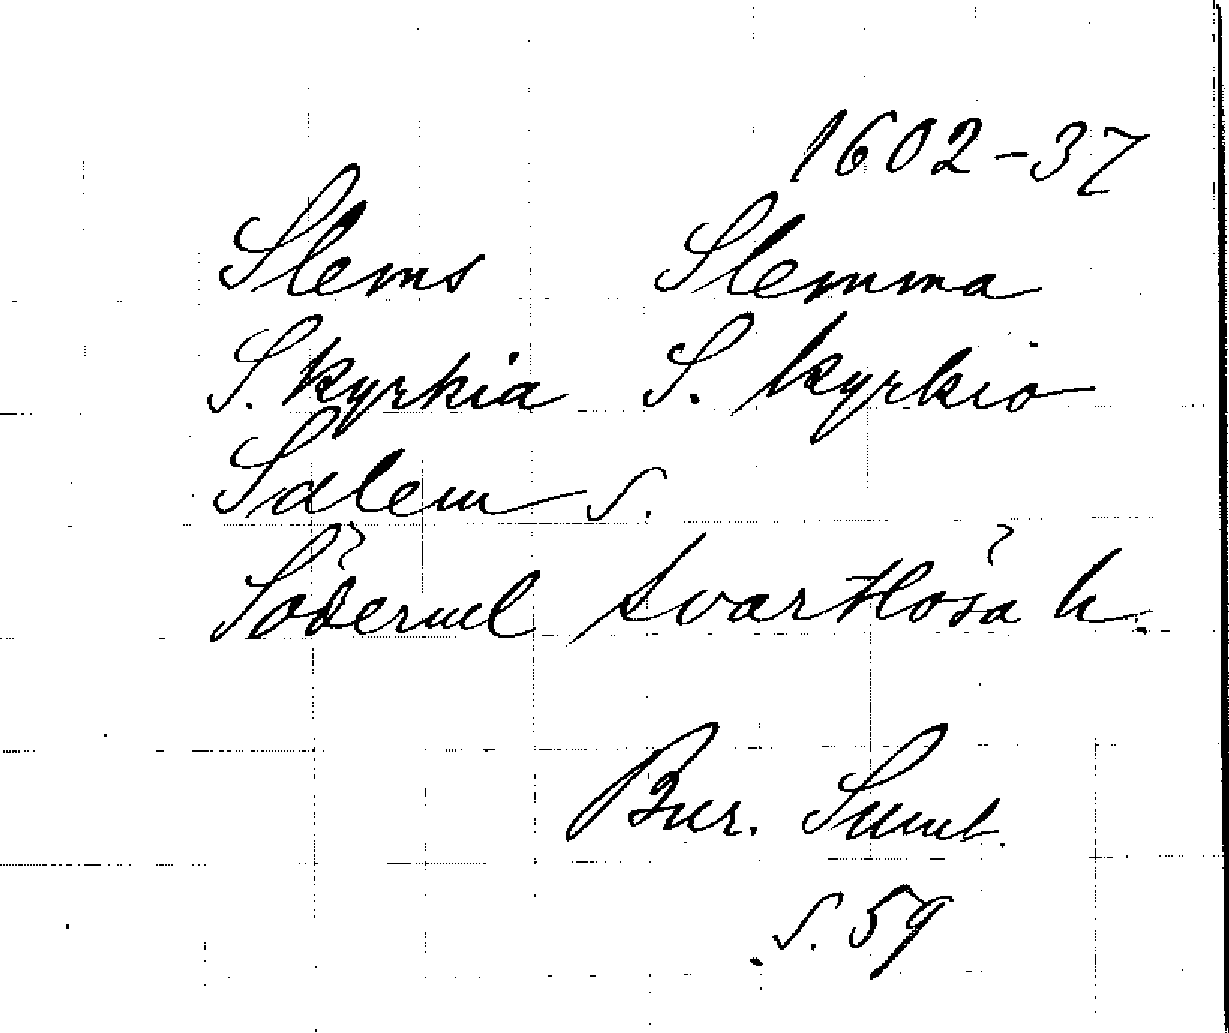 1602-37
Slems Slemma
S. kyrkia S. kyrkio
Salem s.
Söderml Svartlösa h.
Bur. Suml.
s. 59